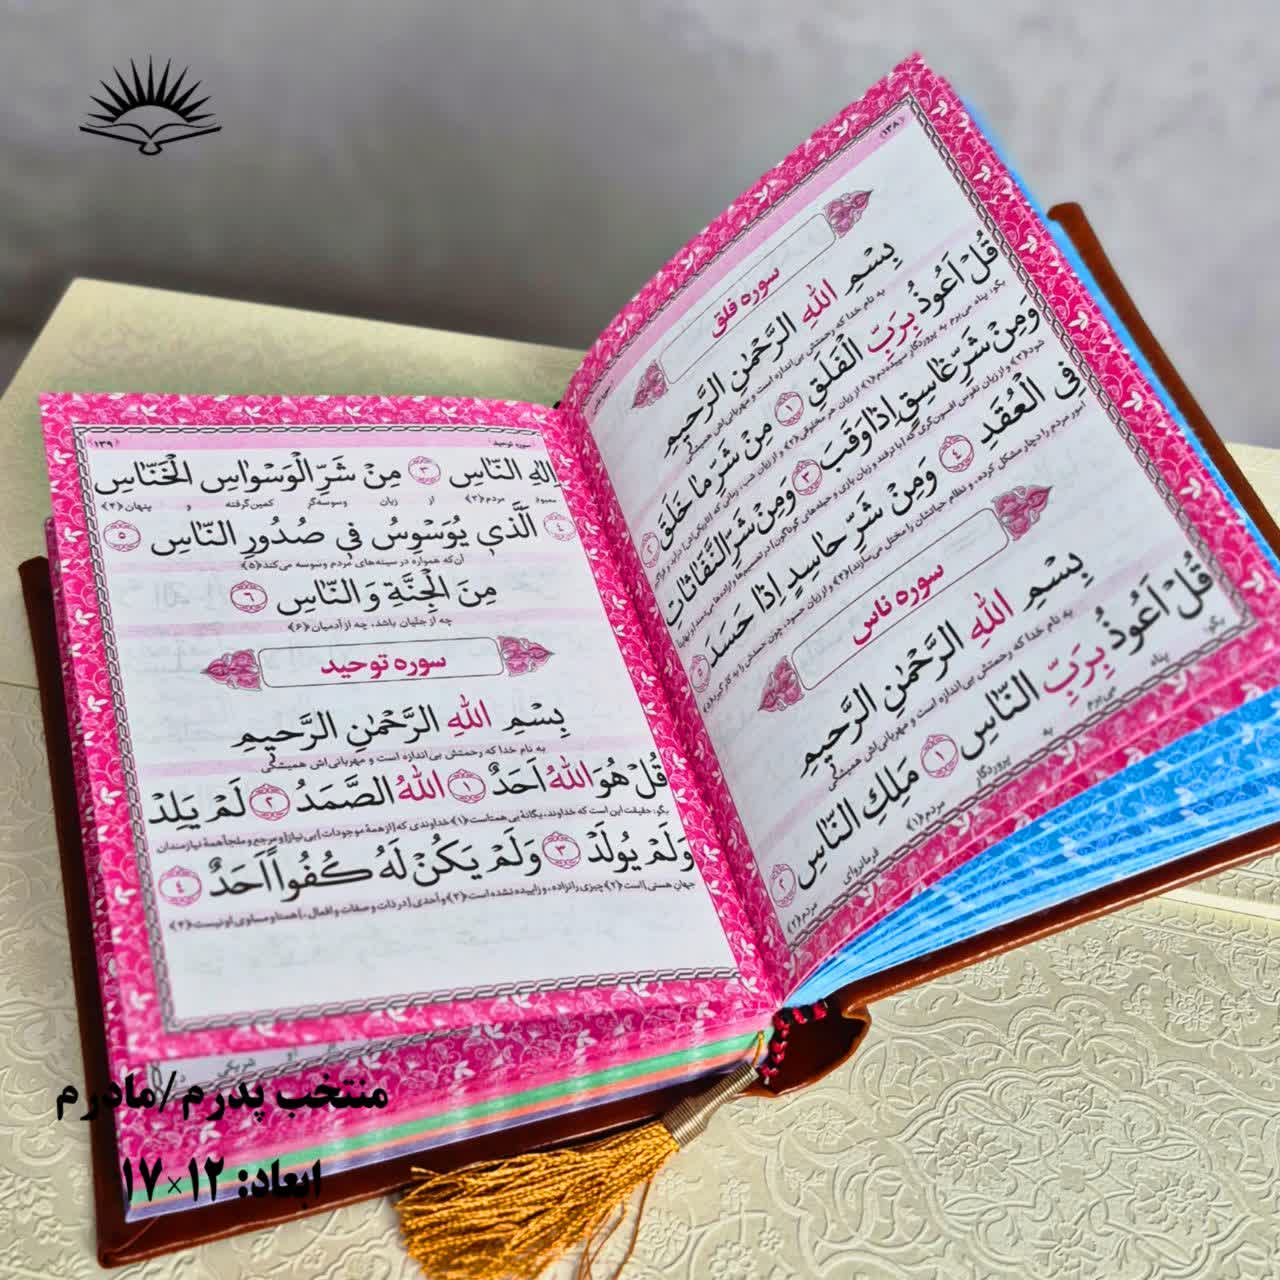 ﴿۱۳۸﴾
سوره فلق
بِسْمِ اللّٰهِ الرَّحْمٰنِ الرَّحیمِ
به نام خدا که رحمتش بی‌اندازه است و مهربانی‌اش همیشگی
قُلْ اَعُوذُ بِرَبِّ الْفَلَقِ ۱ مِنْ شَرِّ مٰا خَلَقَ ۲
وَ مِنْ شَرِّ غٰاسِقٍ اِذٰا وَقَبَ ۳ وَ مِنْ شَرِّ النَّفّٰاثٰاتِ
فِی الْعُقَدِ ۴ وَ مِنْ شَرِّ حٰاسِدٍ اِذٰا حَسَدَ ۵
سوره ناس
بِسْمِ اللّٰهِ الرَّحْمٰنِ الرَّحیمِ
به نام خدا که رحمتش بی‌اندازه است و مهربانی‌اش همیشگی
قُلْ اَعُوذُ بِرَبِّ النّٰاسِ ۱ مَلِكِ النّٰاسِ ۲
بگو: پناه می‌برم به پروردگار مردم﴿۱﴾ فرمانروای مردم﴿۲﴾
سوره توحید ﴿۱۳۹﴾
اِلٰهِ النّٰاسِ ۳ مِنْ شَرِّ الْوَسْوٰاسِ الْخَنّٰاسِ
معبود مردم﴿۳﴾ از زیان وسوسه‌گر کمین‌گرفته و پنهان﴿۴﴾
۴ اَلَّذی یُوَسْوِسُ فی صُدُورِ النّٰاسِ ۵
آن که همواره در سینه‌های مردم وسوسه می‌کند﴿۵﴾
مِنَ الْجِنَّةِ وَ النّٰاسِ ۶
چه از جنّیان باشد، چه از آدمیان﴿۶﴾
سوره توحید
بِسْمِ اللّٰهِ الرَّحْمٰنِ الرَّحیمِ
به نام خدا که رحمتش بی‌اندازه است و مهربانی‌اش همیشگی
قُلْ هُوَ اللّٰهُ اَحَدٌ ۱ اَللّٰهُ الصَّمَدُ ۲ لَمْ یَلِدْ
بگو: حقیقت این است که خداوند، یگانهٔ بی‌همتاست﴿۱﴾ خداوندی که [از همهٔ موجودات] بی‌نیاز [و مرجع و ملجأ همهٔ نیازمندان
وَ لَمْ یُولَدْ ۳ وَ لَمْ یَکُنْ لَهُ کُفُواً اَحَدٌ ۴
جهانِ هستی] است﴿۲﴾ چیزی را نزاده، و زاییده نشده است﴿۳﴾ و احدی [در ذات و صفات و افعال،] همتا و مساوی او نیست﴿۴﴾
منتخب پدرم /مادرم
ابعاد: ۱۲×۱۷